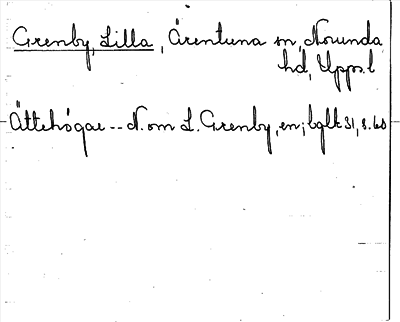 Grenby, Lilla, Ärentuna sn, Norunda
hd, Upps. l
Ättehögar -- N. om L. Grenby, en; bglt 31, s. 60